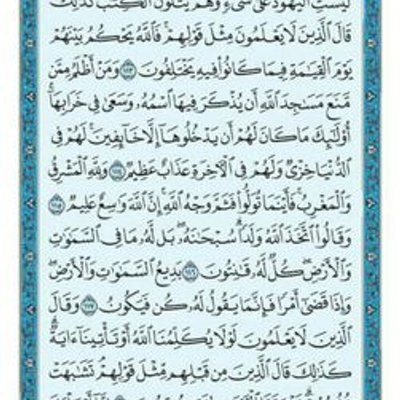 ليست اليهود على شيء وهم يتلون الكتب كذلك
قَالَ ٱلَّذِينَ لَا يَعۡلَمُونَ مِثۡلَ قَوۡلِهِمۡۚ فَٱللَّهُ يَحۡكُمُ بَيۡنَهُمۡ
يَوۡمَ ٱلۡقِيَٰمَةِ فِيمَا كَانُواْ فِيهِ يَخۡتَلِفُونَ ١١٣ وَمَنۡ أَظۡلَمُ مِمَّن
مَّنَعَ مَسَٰجِدَ ٱللَّهِ أَن يُذۡكَرَ فِيهَا ٱسۡمُهُۥ وَسَعَىٰ فِي خَرَابِهَآۚ
أُوْلَٰٓئِكَ مَا كَانَ لَهُمۡ أَن يَدۡخُلُوهَآ إِلَّا خَآئِفِينَۚ لَهُمۡ فِي
ٱلدُّنۡيَا خِزۡيٞ وَلَهُمۡ فِي ٱلۡأٓخِرَةِ عَذَابٌ عَظِيمٞ ١١٤ وَلِلَّهِ ٱلۡمَشۡرِقُ
وَٱلۡمَغۡرِبُۚ فَأَيۡنَمَا تُوَلُّواْ فَثَمَّ وَجۡهُ ٱللَّهِۚ إِنَّ ٱللَّهَ وَٰسِعٌ عَلِيمٞ ١١٥
وَقَالُواْ ٱتَّخَذَ ٱللَّهُ وَلَدٗاۗ سُبۡحَٰنَهُۥۖ بَل لَّهُۥ مَا فِي ٱلسَّمَٰوَٰتِ
وَٱلۡأَرۡضِۖ كُلّٞ لَّهُۥ قَٰنِتُونَ ١١٦ بَدِيعُ ٱلسَّمَٰوَٰتِ وَٱلۡأَرۡضِۖ
وَإِذَا قَضَىٰٓ أَمۡرٗا فَإِنَّمَا يَقُولُ لَهُۥ كُن فَيَكُونُ ١١٧ وَقَالَ
ٱلَّذِينَ لَا يَعۡلَمُونَ لَوۡلَا يُكَلِّمُنَا ٱللَّهُ أَوۡ تَأۡتِينَآ ءَايَةٞۗ
كَذَٰلِكَ قَالَ ٱلَّذِينَ مِن قَبۡلِهِم مِّثۡلَ قَوۡلِهِمۡۘ تَشَٰبَهَتۡ